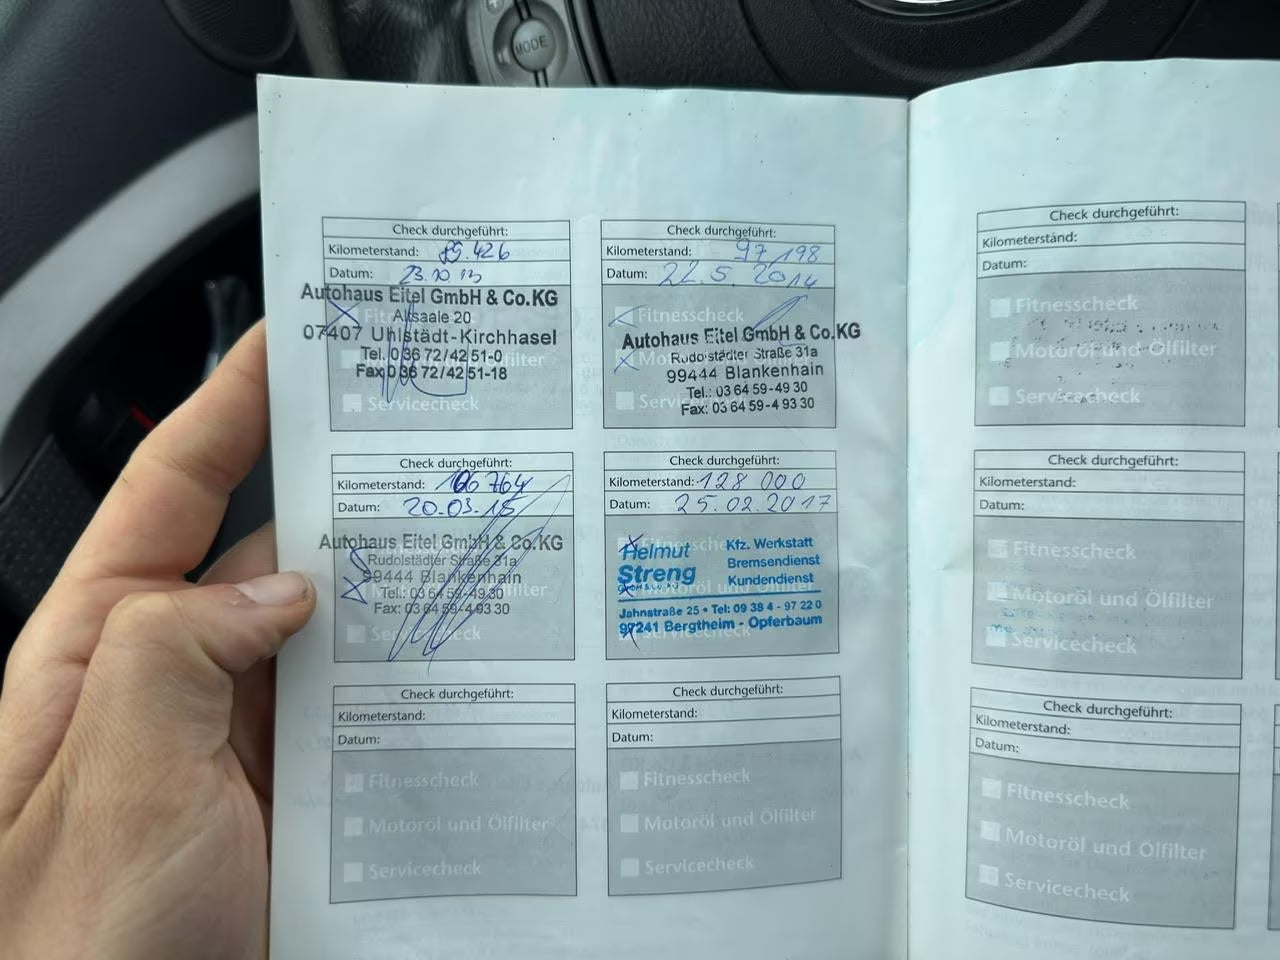 MODE
Check durchgeführt:
Kilometerstand: 89.426
Datum: 23.10.13
Autohaus Eitel GmbH & Co.KG
Altsaale 20
07407 Uhlstädt-Kirchhasel
Tel. 0 36 72/42 51-0
Fax 0 36 72/42 51-18
Servicecheck
Check durchgeführt:
Kilometerstand: 97 198
Datum: 22.5.2014
Fitnesscheck
Autohaus Eitel GmbH & Co.KG
Rudolstädter Straße 31a
99444 Blankenhain
Tel.: 03 64 59-49 30
Fax: 03 64 59-4 93 30
Check durchgeführt:
Kilometerstand: 106 764
Datum: 20.03.15
Autohaus Eitel GmbH & Co.KG
Rudolstädter Straße 31a
99444 Blankenhain
Tel.: 03 64 59-49 30
Fax: 03 64 59-4 93 30
Check durchgeführt:
Kilometerstand: 128 000
Datum: 25.02.2017
Helmut Kfz. Werkstatt
Streng Bremsendienst
Kundendienst
Jahnstraße 25 • Tel: 09 38 4 - 97 22 0
97241 Bergtheim - Opferbaum
Check durchgeführt:
Kilometerstand:
Datum:
Fitnesscheck
Motoröl und Ölfilter
Servicecheck
Check durchgeführt:
Kilometerstand:
Datum:
Fitnesscheck
Motoröl und Ölfilter
Servicecheck
Check durchgeführt:
Kilometerstand:
Datum:
Fitnesscheck
Motoröl und Ölfilter
Servicecheck
Check durchgeführt:
Kilometerstand:
Datum:
Fitnesscheck
Motoröl und Ölfilter
Servicecheck
Check durchgeführt:
Kilometerstand:
Datum:
Fitnesscheck
Motoröl und Ölfilter
Servicecheck